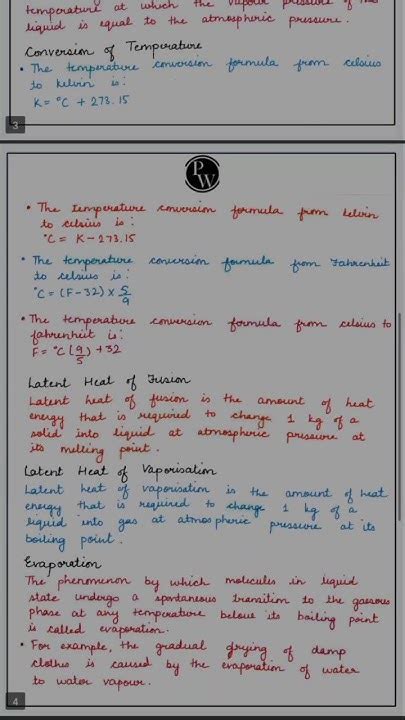 temperature at which the vapour pressure of the
liquid is equal to the atmospheric pressure.
Conversion of Temperature
• The temperature conversion formula from celsius
to kelvin is:
K = °C + 273.15
3
P
W
• The temperature conversion formula from kelvin
to celsius is:
°C = K - 273.15
• The temperature conversion formula from Fahrenheit
to celsius is:
°C = (F - 32) × 5/9
• The temperature conversion formula from celsius to
fahrenheit is:
F = °C (9/5) + 32
Latent Heat of Fusion
Latent heat of fusion is the amount of heat
energy that is required to change 1 kg of a
solid into liquid at atmospheric pressure at
its melting point.
Latent Heat of Vaporisation
Latent heat of vaporisation is the amount of heat
energy that is required to change 1 kg of a
liquid into gas at atmospheric pressure at its
boiling point.
Evaporation
The phenomenon by which molecules in liquid
state undergo a spontaneous transition to the gaseous
phase at any temperature below its boiling point
is called evaporation.
• For example, the gradual drying of damp
clothes is caused by the evaporation of water
to water vapour.
4